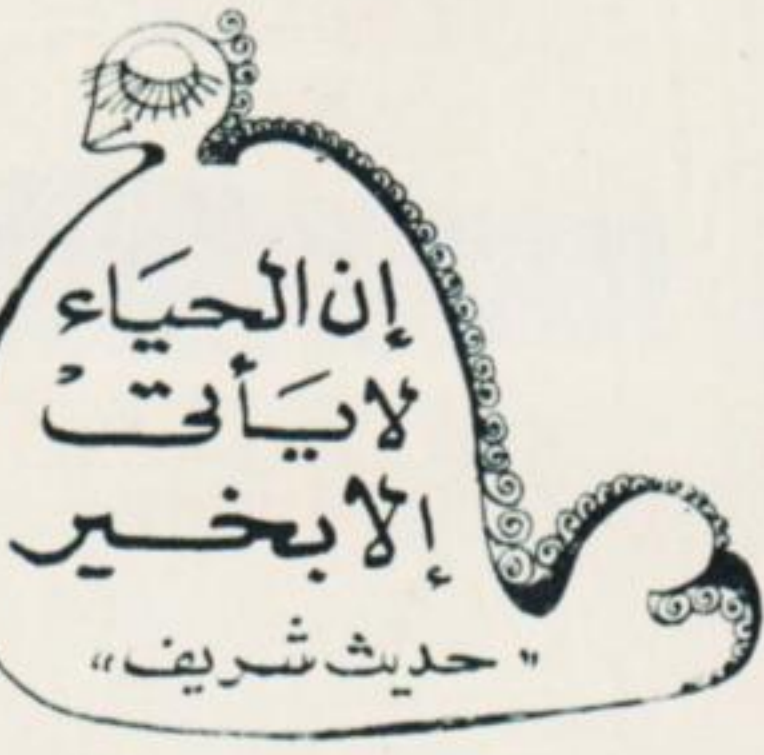 إن الحيَاء
لا يَأتىْ
إلا بخير
"حديث شريف"